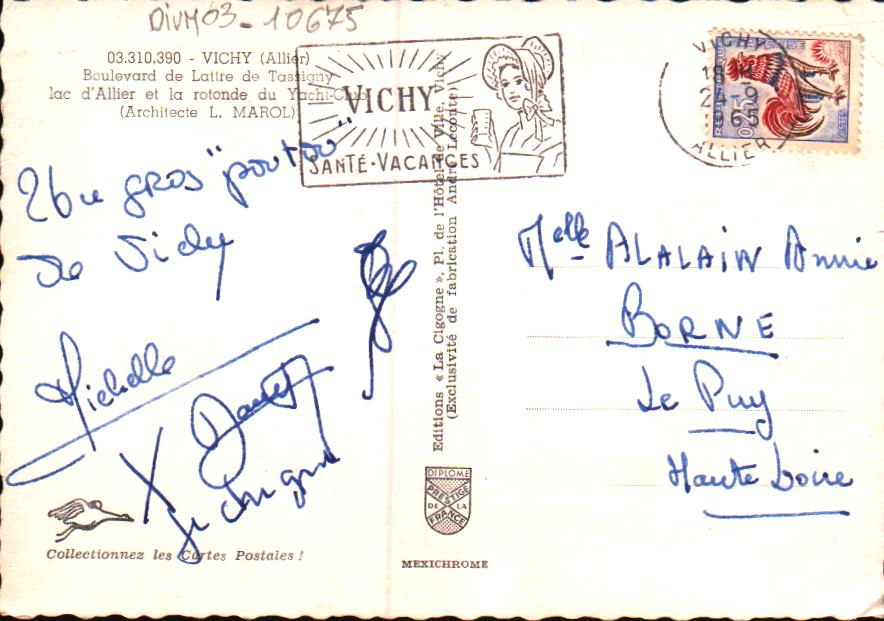 DIVM03-10675
03.310.390 - VICHY (Allier)
Boulevard de Lattre de Tassigny
lac d'Allier et la rotonde du Yacht-Club
(Architecte L. MAROL)
VICHY
SANTÉ-VACANCES
VICHY
18 H
24-9
1965
ALLIER
0,25
gros "poutou"
de Vichy
Michelle
Melle ALALAIN Annie
BORNE
Le Puy
Haute Loire
Editions « La Cigogne », Pl. de l'Hôtel de Ville, Vichy
(Exclusivité de fabrication André Leconte)
DIPLOME
PRESTIGE
DE LA
FRANCE
Collectionnez les Cartes Postales !
MEXICHROME